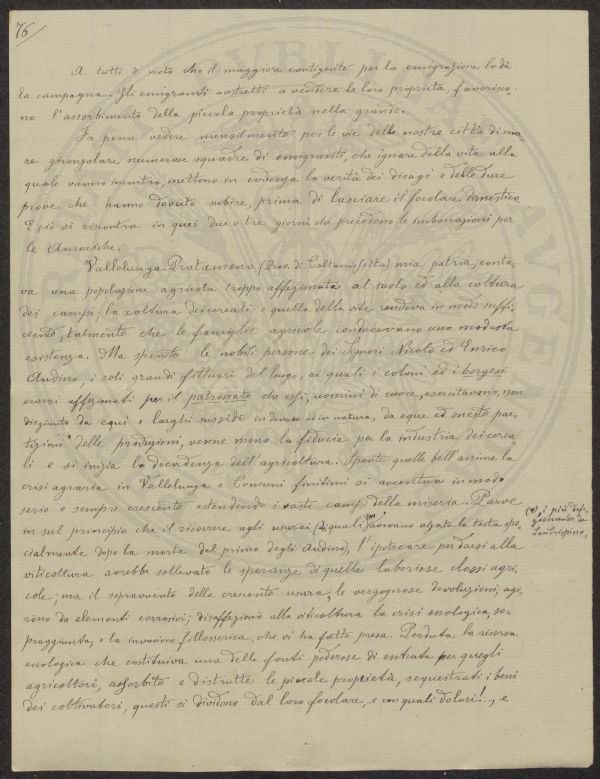 76/
A tutti è noto che il maggiore contigente per la emigrazione lo dà
la campagna. Gli emigranti costretti a vendere le loro proprietà, favorisco-
no l'assorbimento della piccola proprietà nella grande.
Fa pena vedere mensilmente per le vie delle nostre città di ma-
re gironzolare numerose squadre di emigranti, che ignare della vita alla
quale vanno incontro, mettono in evidenza la verità dei disagi e delle dure
prove che hanno dovuto subire, prima di lasciare il focolare domestico.
E ciò si riscontra in quei due o tre giorni che precedono le imbarcazioni per
le Americhe.
Vallelunga-Pratameno (Prov. di Caltanissetta) mia patria, conta-
va una popolazione agricola troppo affezionata al suolo ed alla coltura
dei campi; la coltura dei cereali e quella della vite rendeva in modo suffi-
ciente, talmente che le famiglie agricole conducevano una modesta
esistenza. Ma spente le nobili persone dei Signori Nicolò ed Enrico
Audino, i soli grandi fittuari del luogo, ai quali i coloni ed i borgesi
eransi affezionati per il patronato che essi, uomini di cuore, esercitavano, non
disgiunto da equi e larghi sussidi in denaro ed in natura, da eque ed oneste par-
tizioni delle produzioni, venne meno la fiducia per la industria dei cerea-
li e si inizia la decadenza dell'agricoltura. Spente quelle bell'anime la
crisi agraria in Vallelunga e Comuni finitimi si accentua in modo
serio e sempre crescente estendendo i vasti campi della miseria. Parve
in sul principio che il ricorrere agli usurai (di quali (*) avevano alzata la testa spe-
cialmente dopo la morte del primo degli Audino), l'ipotecare per darsi alla
viticoltura avrebbe sollevato le speranze di quelle laboriose classi agri-
cole; ma il sopravvento della crescente usura, le vergognose devoluzioni, agi-
rono da elementi corrosivi; disaffezionò alla viticoltura la crisi enologica, so-
praggiunta, e la invasione fillosserica, che vi ha fatto presa. Perduta la risorsa
enologica che costituiva una delle fonti poderose di entrata per quegli
agricoltori, assorbite e distrutte le piccole proprietà, sequestrati i beni
dei coltivatori, questi si dividono dal loro focolare, e con quali dolori!.., e
(*) i più